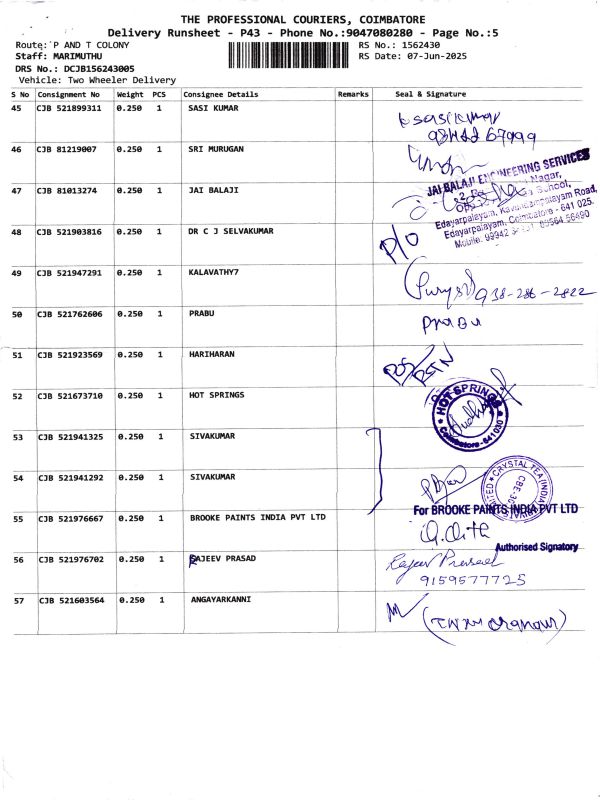 THE PROFESSIONAL COURIERS, COIMBATORE
Delivery Runsheet - P43 - Phone No.:9047080280 - Page No.:5
Route: P AND T COLONY
RS No.: 1562430
Staff: MARIMUTHU
RS Date: 07-Jun-2025
DRS No.: DCJB156243005
Vehicle: Two Wheeler Delivery
S No Consignment No Weight PCS Consignee Details Remarks Seal & Signature
45 CJB 521899311 0.250 1 SASI KUMAR
sasikumar
46 CJB 81219007 0.250 1 SRI MURUGAN
47 CJB 81013274 0.250 1 JAI BALAJI
JAI BALAJI ENGINEERING SERVICES
Nagar,
School,
Edayarpalayam, Kavundampalayam Road,
Edayarpalayam, Coimbatore - 641 025.
48 CJB 521903816 0.250 1 DR C J SELVAKUMAR
P/O
49 CJB 521947291 0.250 1 KALAVATHY7
938-286-2822
50 CJB 521762606 0.250 1 PRABU
PRABU
51 CJB 521923569 0.250 1 HARIHARAN
RTN
52 CJB 521673710 0.250 1 HOT SPRINGS
HOT SPRINGS
Coimbatore-641030
53 CJB 521941325 0.250 1 SIVAKUMAR
54 CJB 521941292 0.250 1 SIVAKUMAR
CRYSTAL TEA (INDIA) PRIVATE LIMITED
55 CJB 521976667 0.250 1 BROOKE PAINTS INDIA PVT LTD
For BROOKE PAINTS INDIA PVT LTD
Authorised Signatory
56 CJB 521976702 0.250 1 RAJEEV PRASAD
Rajeev Prasad
9159577725
57 CJB 521603564 0.250 1 ANGAYARKANNI